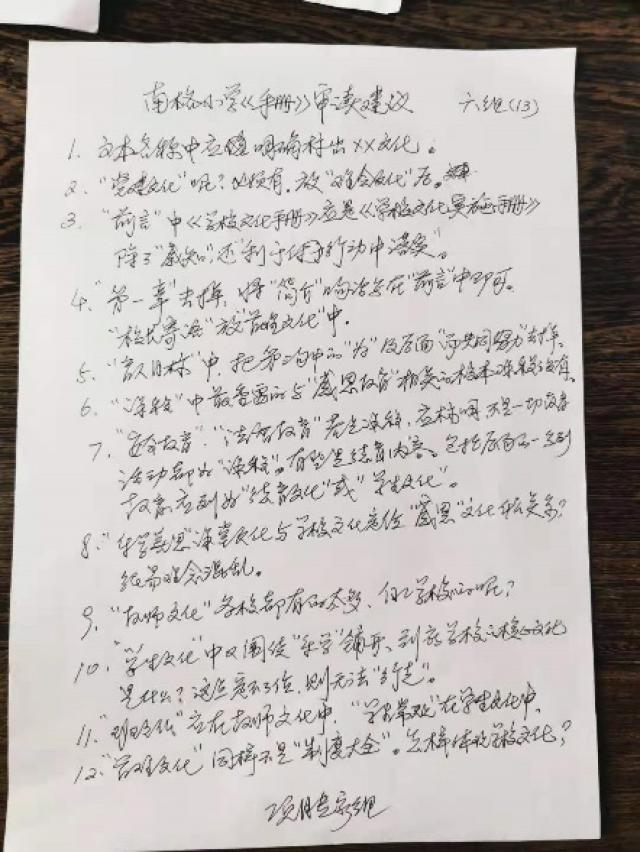 南格小学《手册》审读建议 六组(13)
1、文本名称中应该明确标出××文化。
2、"党建文化"呢?必须有,放"理念文化"后。
3、"前言"中《学校文化手册》应是《学校文化实施手册》
除了"感知",还"利于付诸行动中落实"。
4、"第一章"去掉,将"简介"的内容在"前言"中即可。
"校长寄语"放"理念文化"中。
5、"育人目标"中,把第一句中的"为"及后面"而共同努力"去掉。
6、"课程"中最重要的与"感恩教育"相关的校本课程没有。
7、"安全教育"、"法治教育"若是课程,应标明。不是一切教育
活动都如"课程"。有些是德育内容。包括后面的一系列
教育应列如"德育文化"或"学生文化"。
8、"乐学善思"课堂文化与学校文化定位"感恩"文化什么关系?
容易理念混乱。
9、"教师文化"各校都有的太多,自己学校的呢?
10、"学生文化"中又围绕"乐学"铺开,到底学校的核心文化
是什么?这些定不了位,则无法"行走"。
11、"班主任"应在教师文化中,"学生"在学生文化中。
12、"管理文化"同样不是"制度大全"。怎样体现学校文化?
项目专家组